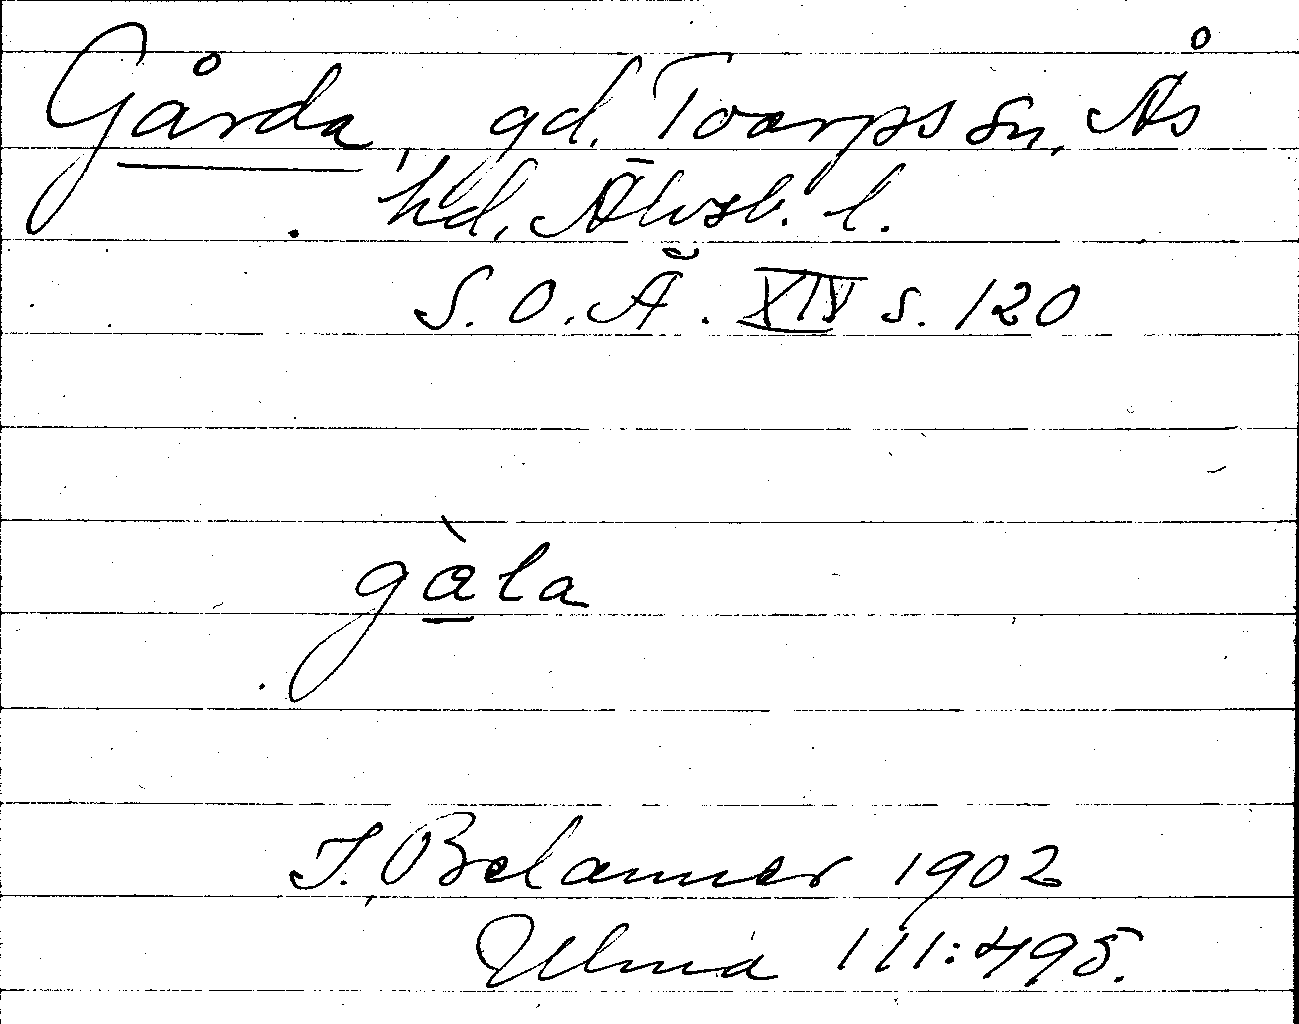 Gårda, gd. Toarps sn, Ås
hd, Älvsb. l.
S. O. Ä. XIV s. 120
gàla
J. Belanner 1902
Ulma 111:495.